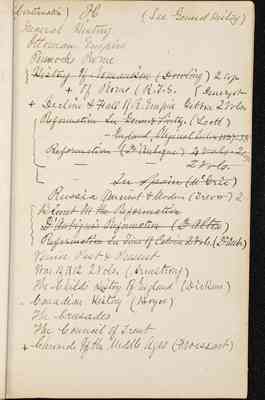 H (See General History)
General History
Ottoman Empire
Remoda Rome
History of Romanism (Dowling) 2 cop
+ " Of Rome (R.T.S.
+ Decline & Fall of R. Empire Gibbon 2 Vols
Reformation In Germany (Scott)
- England,
Reformation (D'Aubigne) 4 vols
- - 2 vols
- In Spain (McCrie)
Russia Ancient & Modern (Trevor) 2
Reformation
D'Aubigne's Reformation (D'Alton)
Reformation In Time of Calvin 2 Vols. (D'Aub.)
Venice Past & Present
War of 1812 2 Vols. (Armstrong)
The Childs History of England (Dickens)
Canadian History (Boyes)
The Crusades
The Council of Trent
+ Chronicle of the Middle Ages (Froissart)